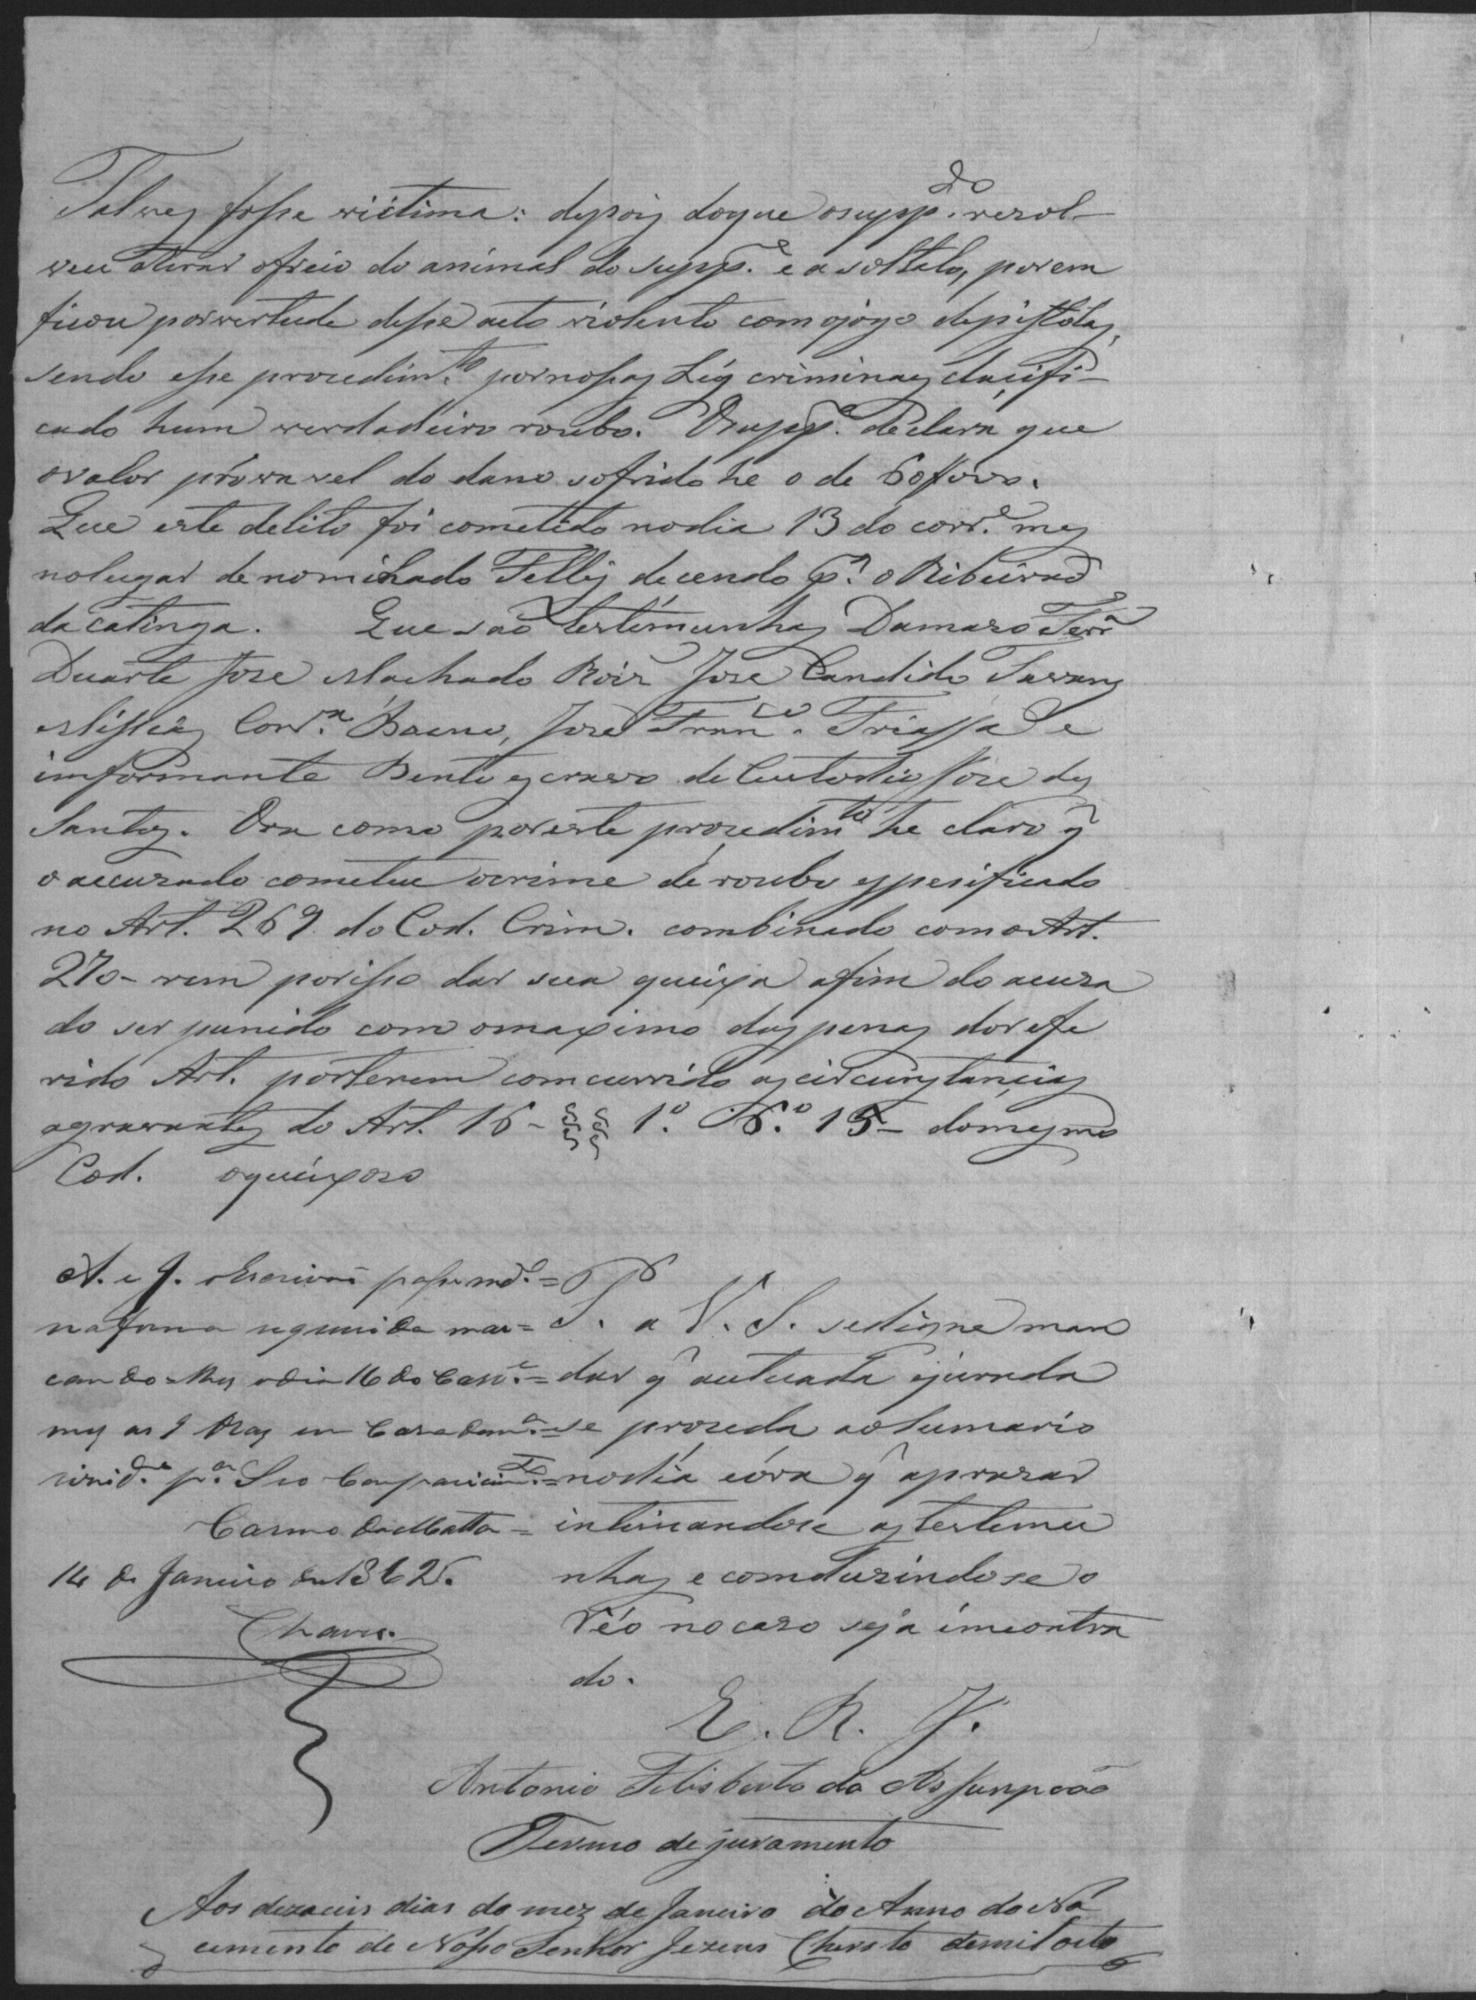 Talves fosse victima: depois doque osupp.do resol-
veu atirar ofreio do animal do supp.e e a soltalo, porem
ficou porvertude desse acto violento com ojogo depistolas,
sendo esse procedim.to pornossas Leis criminaes clacifi-
cado hum verdadeiro roubo. Osupp.e declara que
ovalor provavel do dano sofrido he o de
Que este delito foi cometido nodia 13 do corr.e mes
nolugar denominado Telles decendo p.a o Ribeirão
da catinga. Que são testemunhas Damazo Ferr.a
Duarte Jose Machado Roiz Jose Candido
Misseas Corr.a Bueno, Jose Fran.co e
imformante Bento escravo de Custodio Jose dos
Santos. Ora como poreste procedim.to he claro q̃
o accuzado cometeu ocrime de roubo espesificado
no Art. 269 do Cod. Crim. combinado como Art.
270- vem porisso dar sua queixa afim do acuza
do ser punido com omaximo das penas dorefe
rido Art. porterem comcurrido as circunstancias
agravantes do Art. 16- §§ 1.o 6.o 15- domesmo
Cod. oqueixoso
A. e J. oEscrivão passe md.o =
na forma requerida mar=
cando-lhes odia 16 do Corr.e =
mes as 9 Oras em Caza de m.a =
rezid.a p.a Seo Comparecim.to =
Carmo da Matta =
14 de Janeiro de 1862.
Chaves.
P.
P. a V. S. sedigne man
dar q̃ autuada ejurada
se proceda aosumario
nodia eóra q̃ aprazar
intimandose as testemu
nhas e comduzindose o
réo nocazo seja imcontra
do.
E. R. J.
Antonio Felisberto da Assumpção
Termo de juramento
Aos dezaceis dias do mez de Janeiro do Anno do Na
cimento de Nosso Senhor Jezeus Christo demil oito